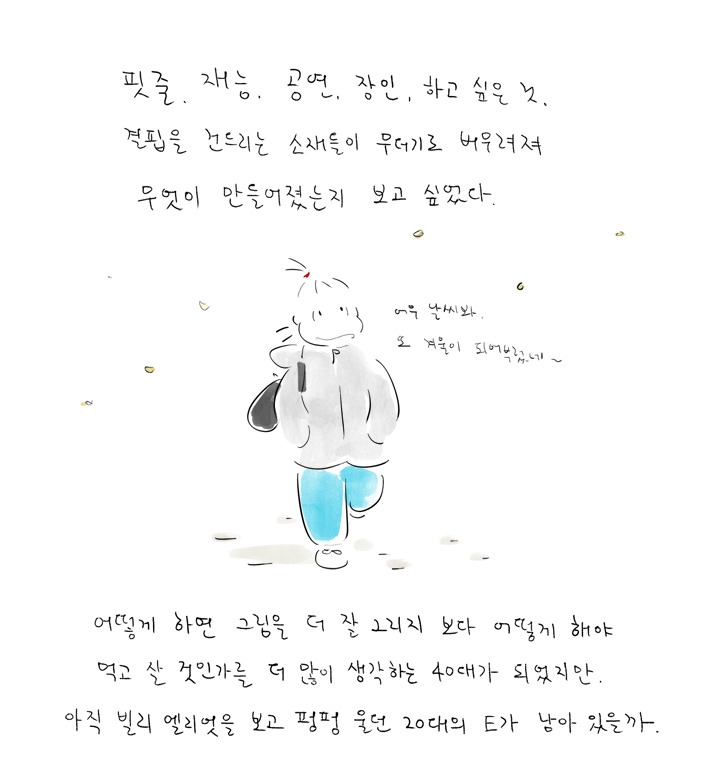 핏줄. 재능. 공연. 장인. 하고 싶은 것.
결핍을 건드리는 소재들이 무더기로 버무려져
무엇이 만들어졌는지 보고 싶었다.
어우 날씨봐.
또 겨울이 되어부렀네~
어떻게 하면 그림을 더 잘 그리지 보다 어떻게 해야
먹고 살 것인가를 더 많이 생각하는 40대가 되었지만.
아직 빌리 엘리엇을 보고 펑펑 울던 20대의 E가 남아 있을까.